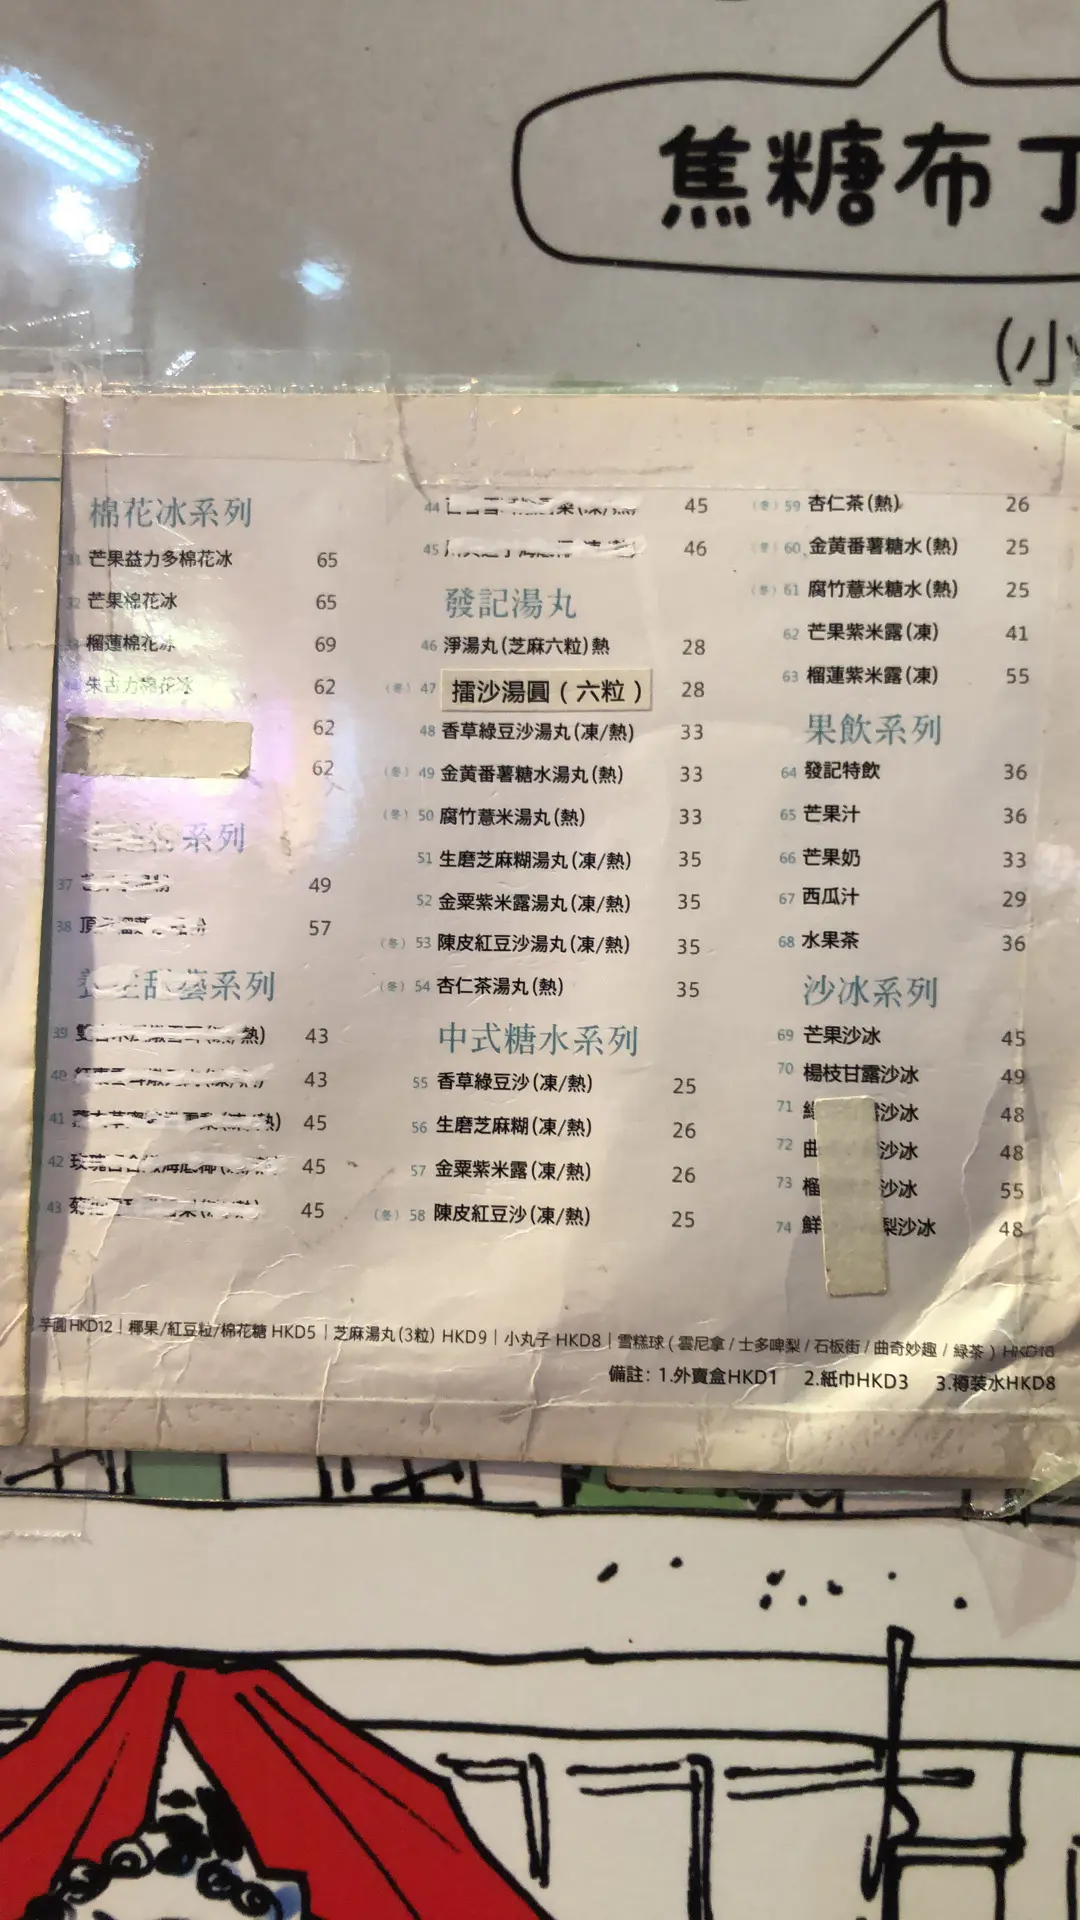 焦糖布丁
(小
棉花冰系列
31 芒果益力多棉花冰 65
32 芒果棉花冰 65
33 榴蓮棉花冰 69
34 朱古力棉花冰 62
62
62
系列
37 49
38 57
系列
39 熱) 43
40 43
41 熱) 45
42 45
43 45
44 45
45 46
發記湯丸
46 淨湯丸(芝麻六粒)熱 28
(冬) 47 擂沙湯圓(六粒) 28
48 香草綠豆沙湯丸(凍/熱) 33
(冬) 49 金黄番薯糖水湯丸(熱) 33
(冬) 50 腐竹薏米湯丸(熱) 33
51 生磨芝麻糊湯丸(凍/熱) 35
52 金粟紫米露湯丸(凍/熱) 35
(冬) 53 陳皮紅豆沙湯丸(凍/熱) 35
(冬) 54 杏仁茶湯丸(熱) 35
中式糖水系列
55 香草綠豆沙(凍/熱) 25
56 生磨芝麻糊(凍/熱) 26
57 金粟紫米露(凍/熱) 26
(冬) 58 陳皮紅豆沙(凍/熱) 25
(冬) 59 杏仁茶(熱) 26
(冬) 60 金黄番薯糖水(熱) 25
(冬) 61 腐竹薏米糖水(熱) 25
62 芒果紫米露(凍) 41
63 榴蓮紫米露(凍) 55
果飲系列
64 發記特飲 36
65 芒果汁 36
66 芒果奶 33
67 西瓜汁 29
68 水果茶 36
沙冰系列
69 芒果沙冰 45
70 楊枝甘露沙冰 49
71 沙冰 48
72 曲 沙冰 48
73 榴 沙冰 55
74 鮮 梨沙冰 48
芋圓HKD12|椰果/紅豆粒/棉花糖 HKD5|芝麻湯丸(3粒) HKD9|小丸子 HKD8|雪糕球(雲尼拿/士多啤梨/石板街/曲奇妙趣/綠茶) HKD18
備註:1.外賣盒HKD1 2.紙巾HKD3 3.樽装水HKD8